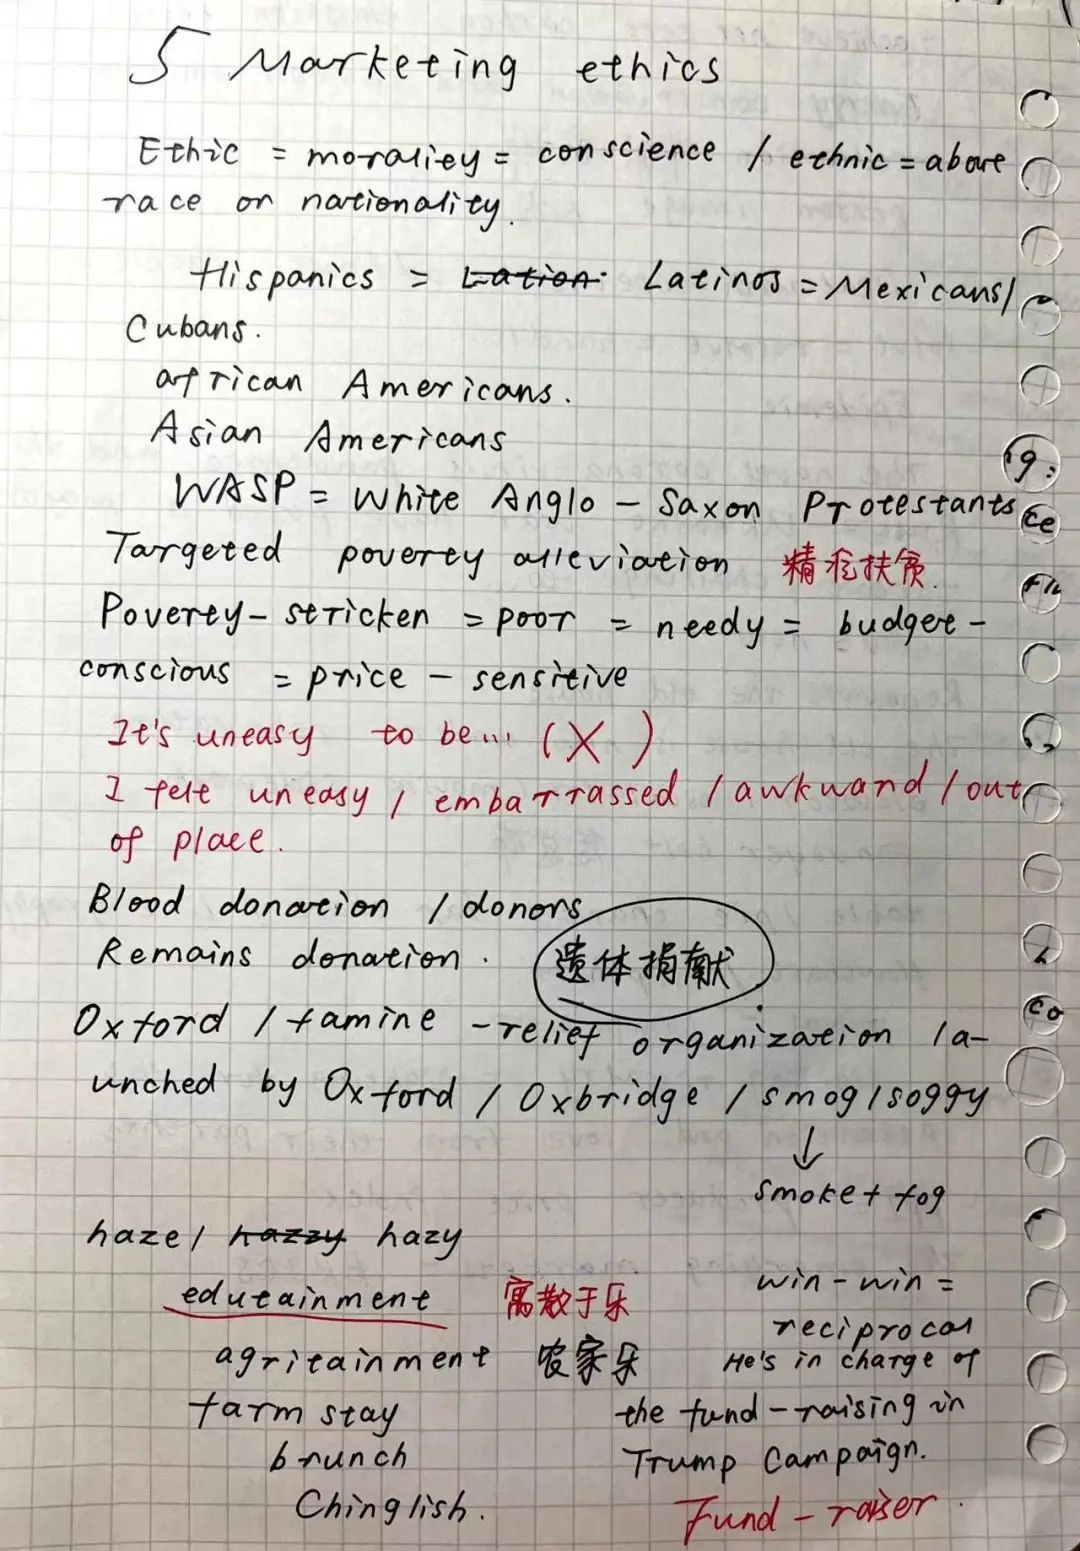 5 Marketing ethics
Ethic = morality = conscience / ethnic = about
race or nationality.
Hispanics = Lation Latinos = Mexicans/
Cubans.
african Americans.
Asian Americans
WASP = White Anglo-Saxon Protestants
Targeted poverty alleviation 精准扶贫.
Poverty-stricken = poor = needy = budget-
conscious = price-sensitive
It's uneasy to be... (X)
I felt uneasy / embarrassed / awkward / out
of place.
Blood donation / donors
Remains donation. 遗体捐献
Oxford / famine-relief organization la-
unched by Oxford / Oxbridge / smog / soggy
↓
smoke + fog
haze / hazzy hazy
edutainment 寓教于乐
win-win =
reciprocal
agritainment 农家乐
He's in charge of
farm stay
the fund-raising in
brunch
Trump Campaign.
Chinglish.
Fund-raiser.